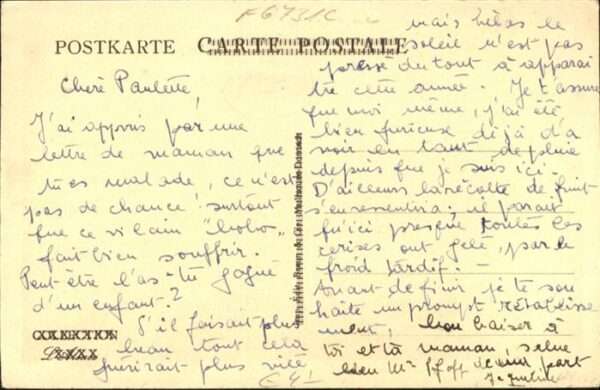 F6731C
POSTKARTE CARTE POSTALE
Chère Paulette
J'ai appris par une
lettre de maman que
tu es malade, ce n'est
pas de chance! surtout
que ce vilain "bobo"
fait bien souffrir.
Peut-être l'as-tu gagné
d'un enfant?
S'il faisait plus
beau tout cela
guérirait plus vite
mais hélas le
soleil n'est pas
pressé du tout à apparaî
tre cette année. Je t'assure
que moi même, j'ai été
bien furieuse déjà d'a
voir eu tant de pluie
depuis que je suis ici.
D'ailleurs la récolte de fruit
s'en ressentira; il parait
qu'ici presque toutes les
cerises ont gelé, par le
froid tardif.
Avant de finir je te sou
haite un prompt rétablisse
ment; bon baiser à
toi et ta maman, salue
bien Mr de ma part